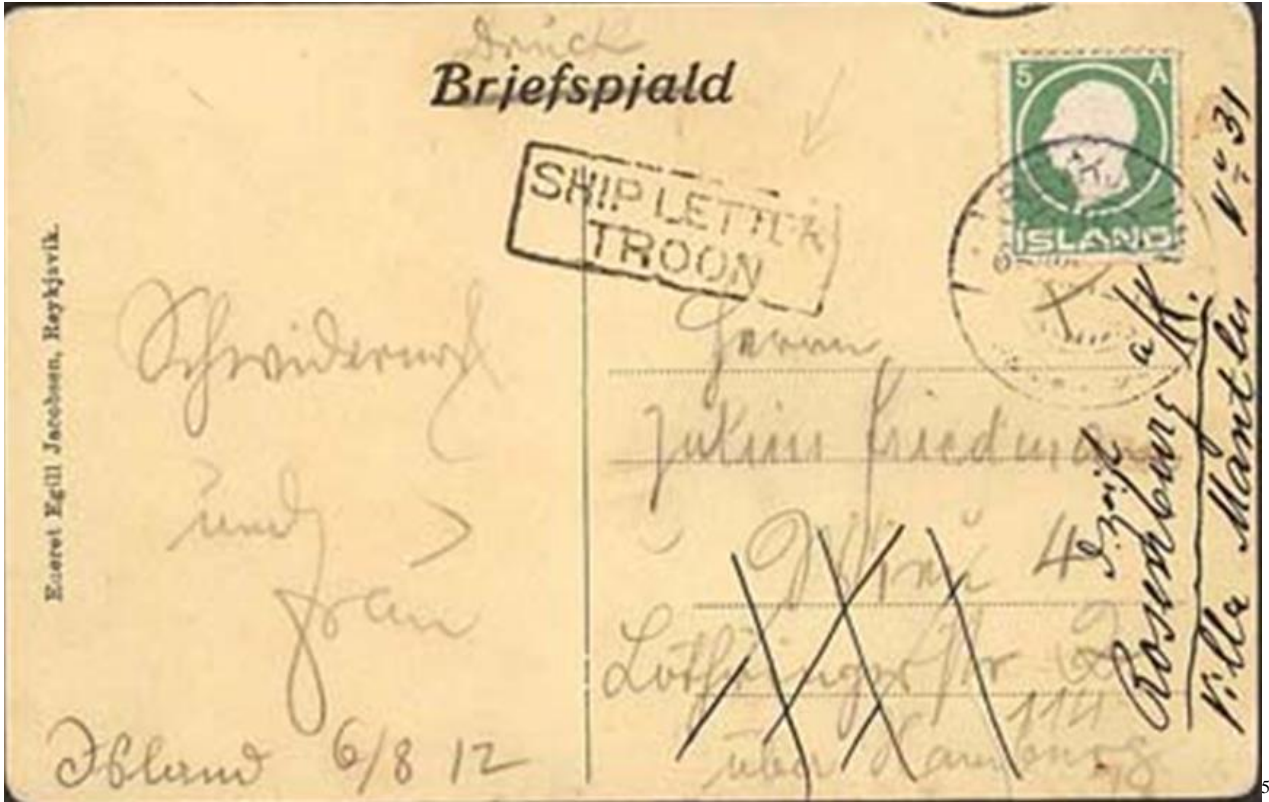 Druck
Briefspjald
SHIP LETTER
TROON
5 A
ÍSLAND
Eneret Egill Jacobsen, Reykjavik.
und
Frau
Island 6/8 12
Herrn
Julius Friedmann
Wien 4
Lothringer Str
114
über Hamburg
d. Zeit
Rosenburg a/K.
Villa Mantler No 31
5